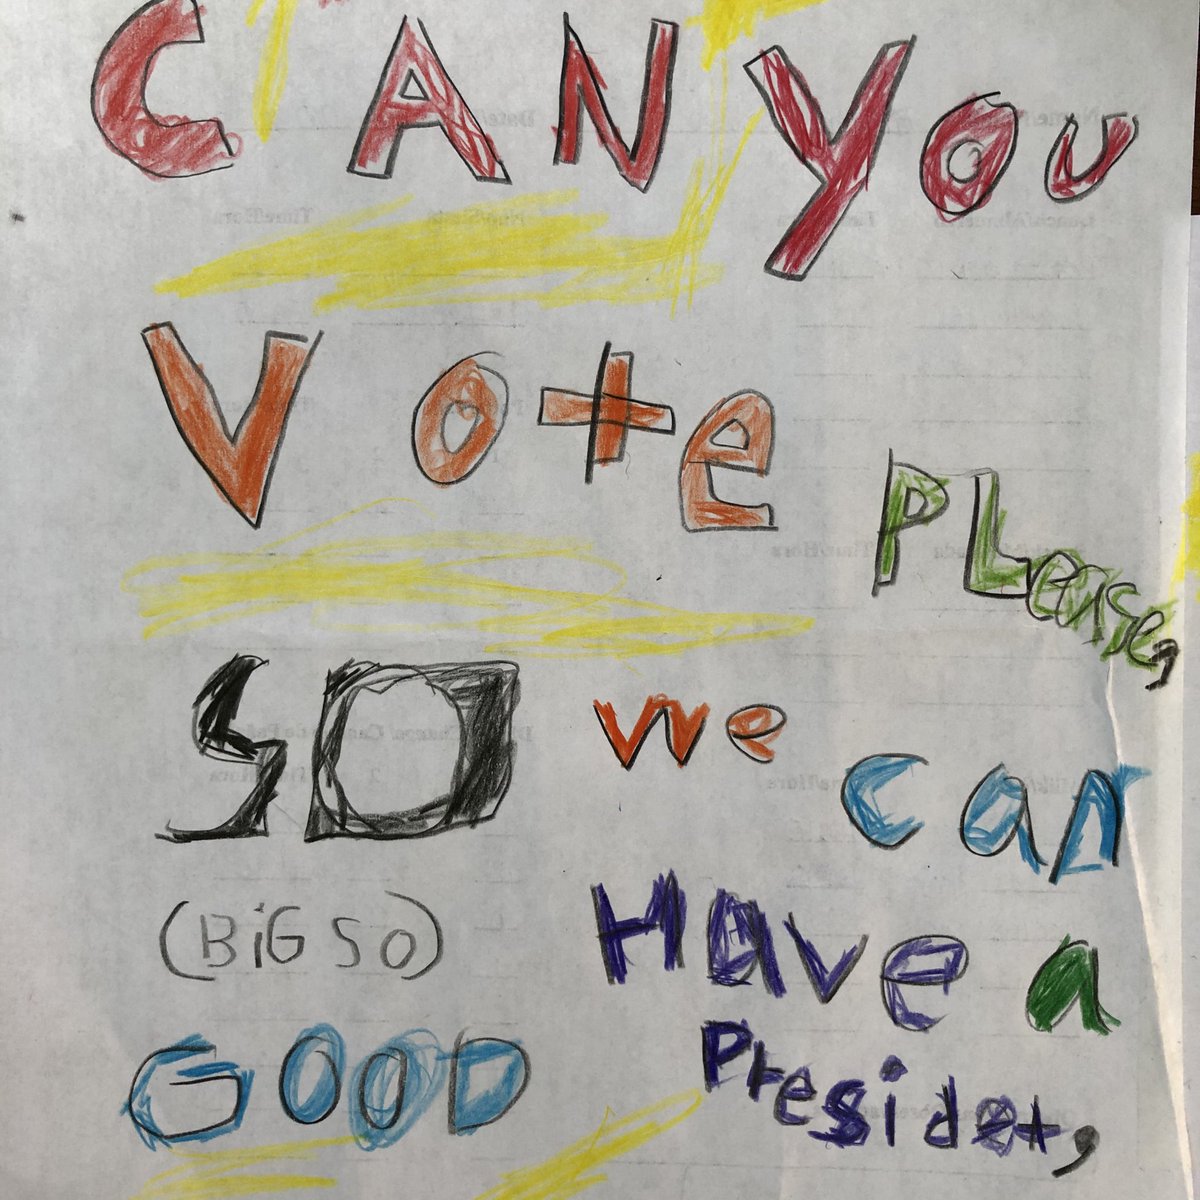 CAN YOU
Vote PLease,
SO we can
(BiG SO) Have a
GOOD Presidet,